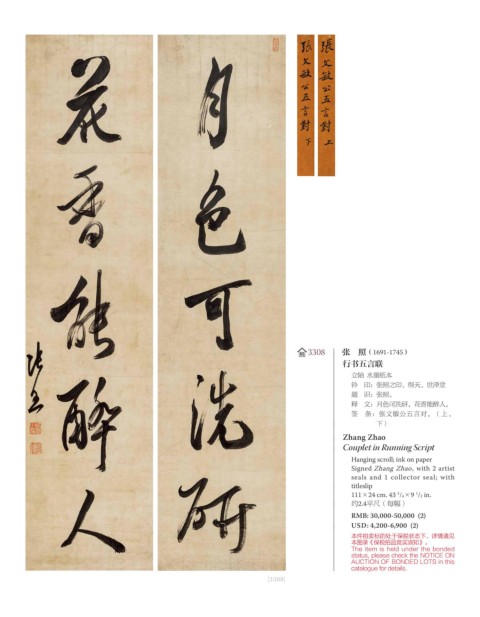 月色可洗研
花香能醉人
張照
張文敏公五言對 上
張文敏公五言對 下
3308
张 照（1691-1745）
行书五言联
立轴 水墨纸本
钤 印：张照之印、得天、世泽堂
题 识：张照。
释 文：月色可洗研，花香能醉人。
签 条：张文敏公五言对。（上、
下）
Zhang Zhao
Couplet in Running Script
Hanging scroll; ink on paper
Signed Zhang Zhao, with 2 artist
seals and 1 collector seal; with
titleslip
111 × 24 cm. 43 3/4 × 9 1/2 in.
约2.4平尺（每幅）
RMB: 30,000-50,000 (2)
USD: 4,200-6,900 (2)
本件拍卖标的处于保税状态下，详情请见
本图录《保税拍品竞买须知》。
The item is held under the bonded
status, please check the NOTICE ON
AUCTION OF BONDED LOTS in this
catalogue for details.
[3308]